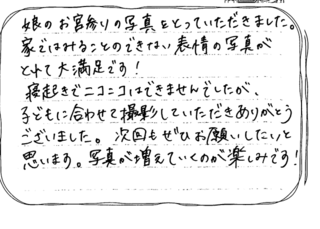 娘のお宮参りの写真をとっていただきました。
家ではみることのできない表情の写真が
とれて大満足です!
寝起きでニコニコはできませんでしたが、
子どもに合わせて撮影していただきありがとう
ございました。次回もぜひお願いしたいと
思います。写真が増えていくのが楽しみです!